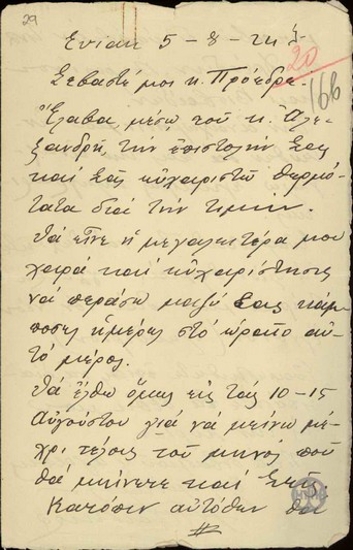 29
Evian 5-8-24
20
166
Σεβαστέ μοι κ. Πρόεδρε
Ἔλαβα, μέσω τοῦ κ. Ἀλε-
ξανδρῆ, τὴν ἐπιστολήν Σας
καὶ Σᾶς εὐχαριστῶ θερμό-
τατα διὰ τὴν τιμήν.
Θὰ εἶνε ἡ μεγαλειτέρα μου
χαρὰ καὶ εὐχαρίστησις
νὰ περάσω μαζύ Σας κάμ-
ποσες ἡμέρες στὸ ὡραῖο αὐ-
τὸ μέρος.
Θὰ ἔλθω ὅμως εἰς τὰς 10-15
Αὐγούστου γιὰ νὰ μείνω μέ-
χρι τέλους τοῦ μηνὸς ποῦ
θὰ μείνετε καὶ Σεῖς.
Κατόπιν αὐτόθεν θὰ